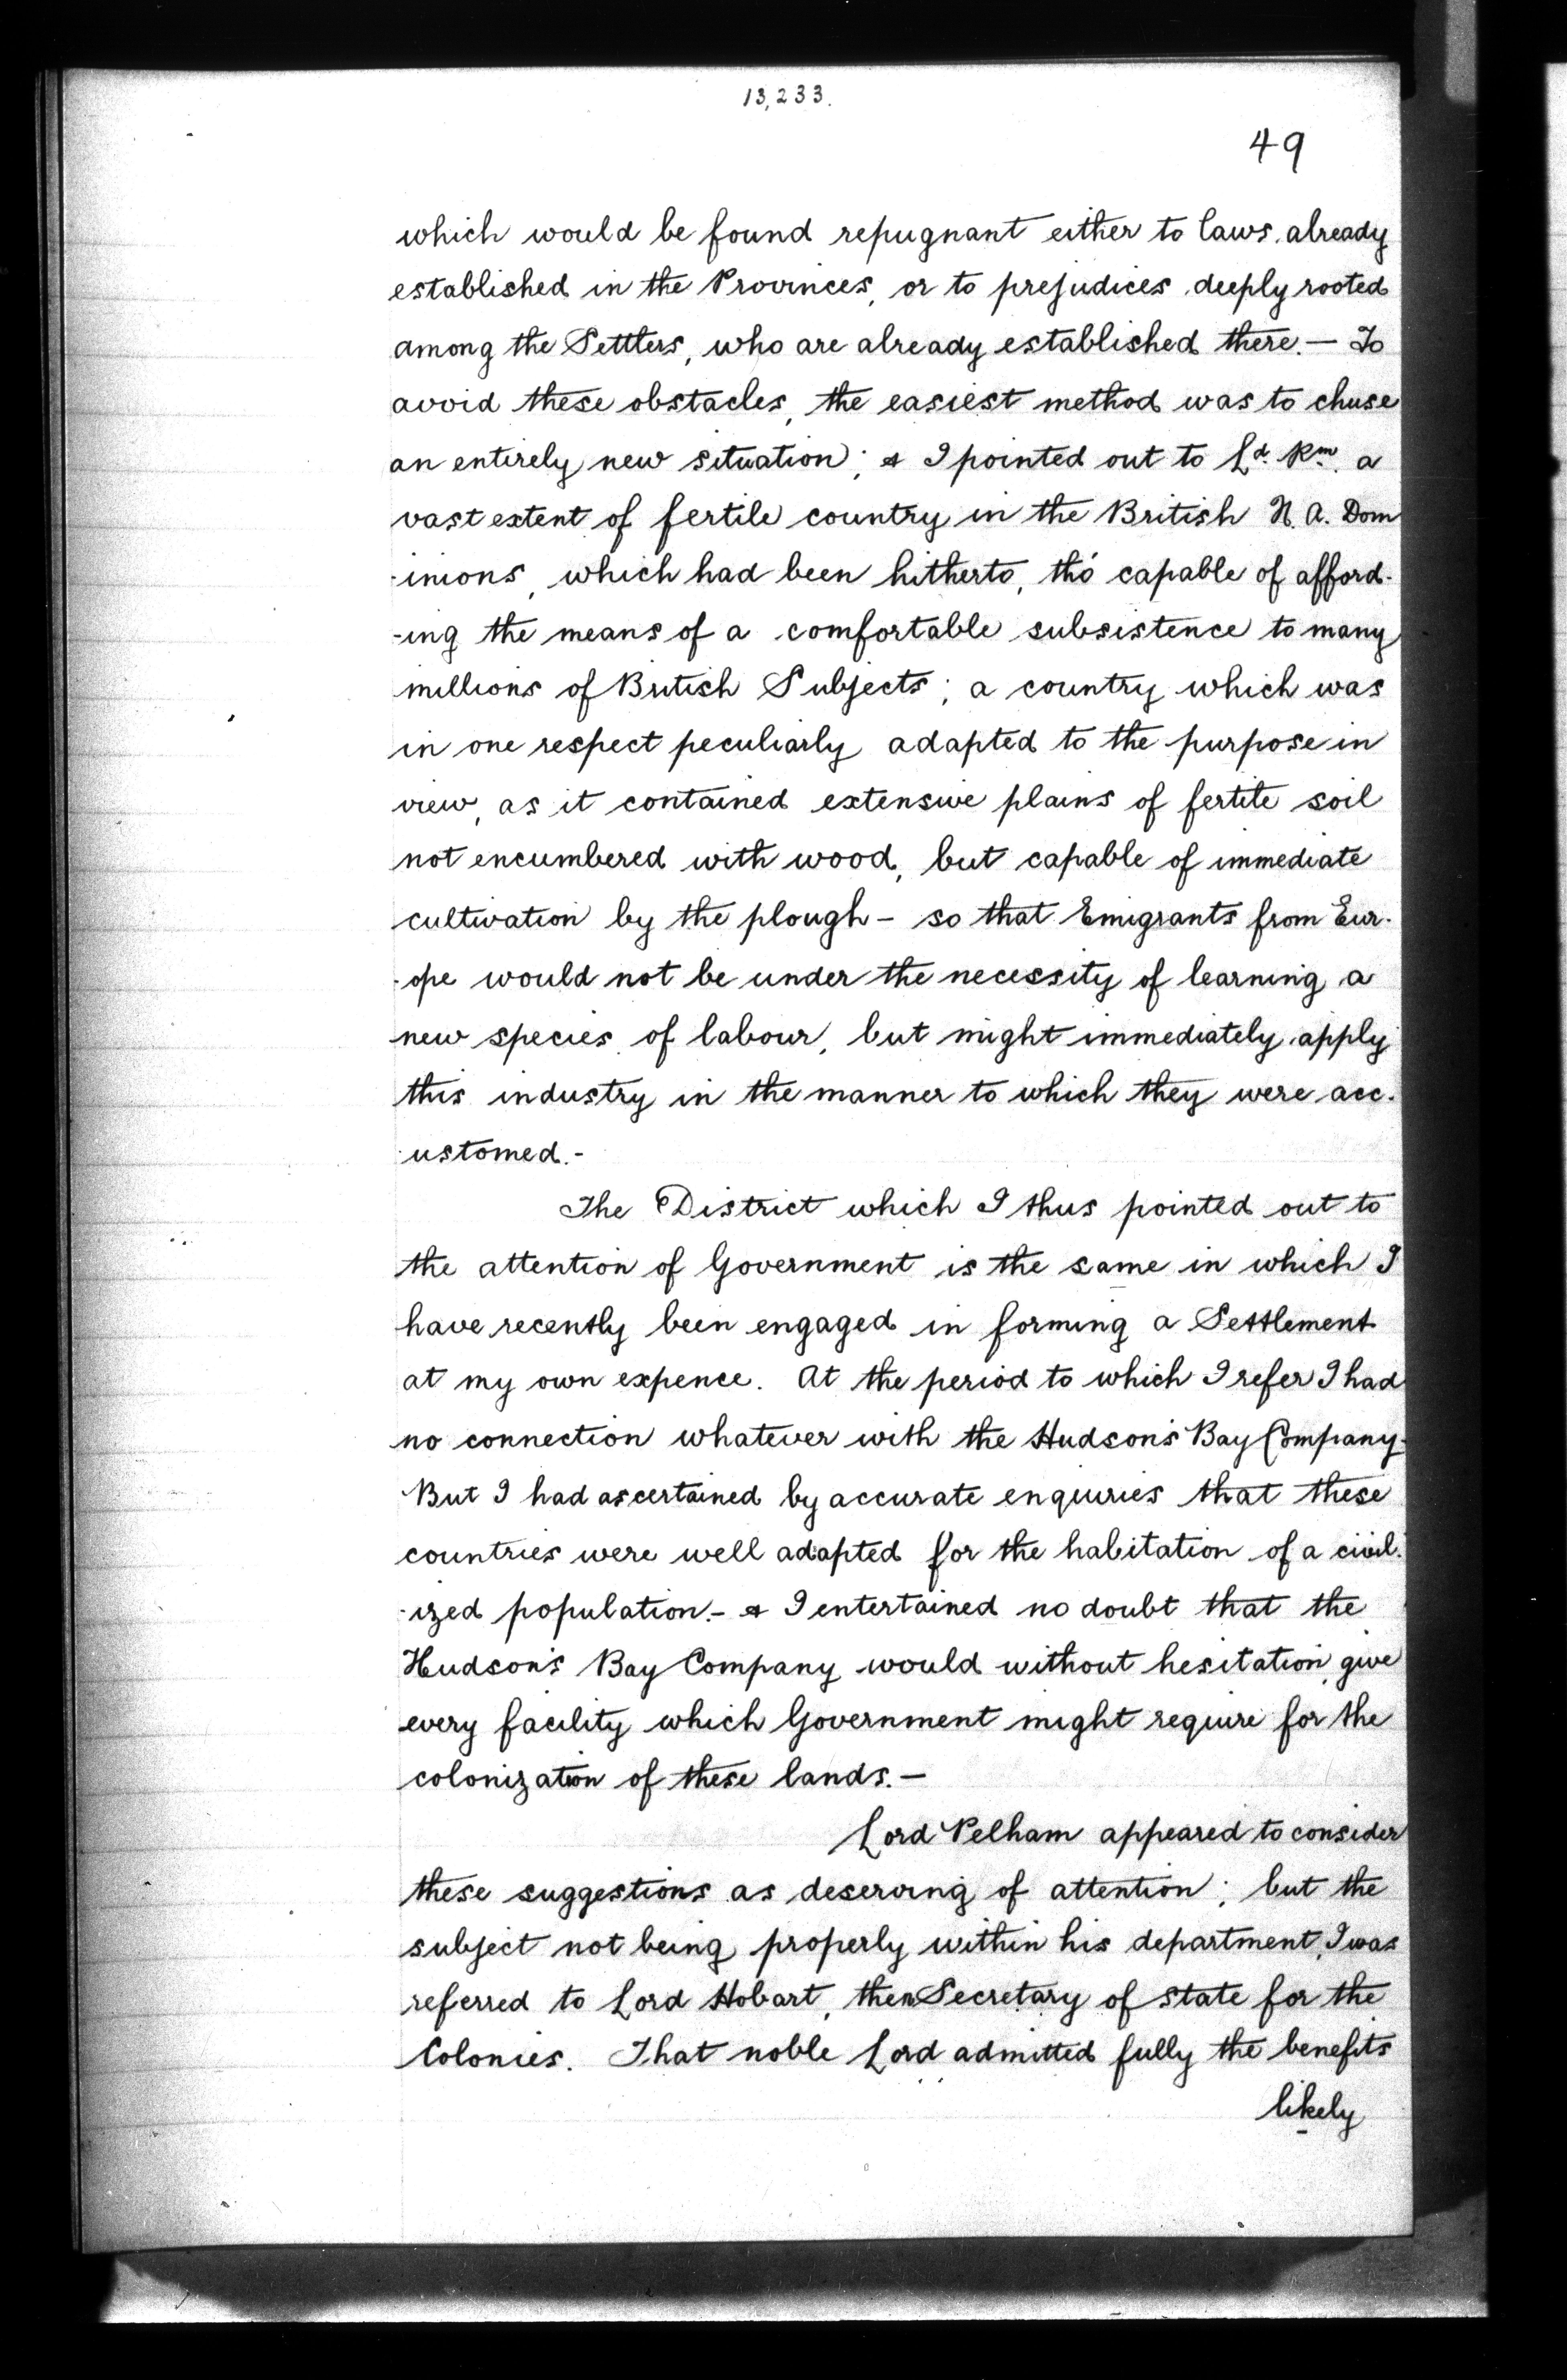 13,233.
49
which would be found repugnant either to laws already
established in the Provinces, or to prejudices deeply rooted
among the Settlers, who are already established there. — To
avoid these obstacles, the easiest method was to chuse
an entirely new situation; & I pointed out to Ld. Pm. a
vast extent of fertile country in the British N. A. Dom
-inions, which had been hitherto, tho' capable of afford-
-ing the means of a comfortable subsistence to many
millions of British Subjects; a country which was
in one respect peculiarly adapted to the purpose in
view, as it contained extensive plains of fertile soil
not encumbered with wood, but capable of immediate
cultivation by the plough - so that Emigrants from Eur-
-ope would not be under the necessity of learning a
new species of labour, but might immediately apply
this industry in the manner to which they were acc-
-ustomed. -
The District which I thus pointed out to
the attention of Government is the same in which I
have recently been engaged in forming a Settlement
at my own expence. At the period to which I refer I had
no connection whatever with the Hudson's Bay Company.
But I had ascertained by accurate enquiries that these
countries were well adapted for the habitation of a civil-
-ized population. - & I entertained no doubt that the
Hudson's Bay Company would without hesitation, give
every facility which Government might require for the
colonization of these lands. —
Lord Pelham appeared to consider
these suggestions as deserving of attention; but the
subject not being properly within his department, I was
referred to Lord Hobart, then Secretary of State for the
Colonies. That noble Lord admitted fully the benefits
likely